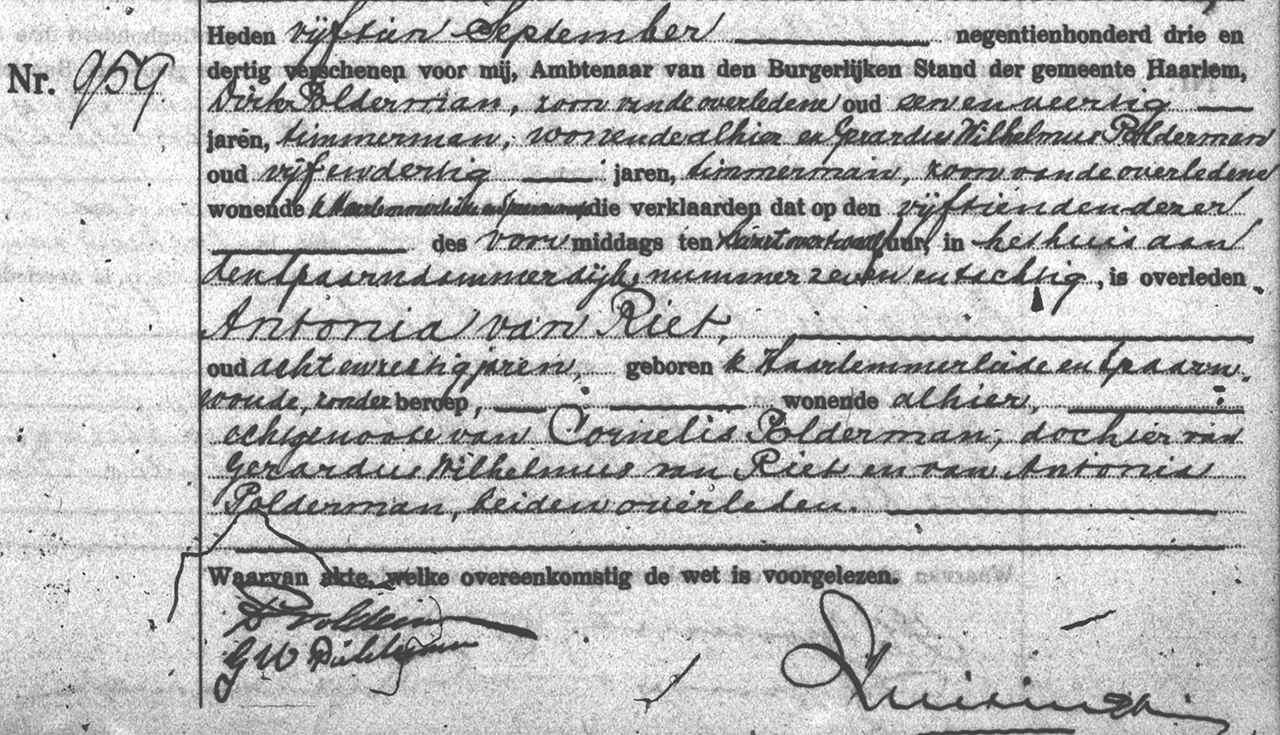 Heden vijftien September negentienhonderd drie en
Nr. 959.
dertig verschenen voor mij, Ambtenaar van den Burgerlijken Stand der gemeente Haarlem,
Dirk Polderman, zoon van de overledene oud een en veertig
jaren, timmerman, wonende alhier en Gerardus Wilhelmus Polderman
oud vijf en dertig jaren, timmerman, zoon van de overledene
wonende te Haarlemmerliede en Spaarnwoude die verklaarden dat op den vijftienden dezer
des voor middags ten uur, in het huis aan
den Spaarndammerdijk nummer zeven en tachtig, is overleden
Antonia van Riet,
oud acht en zestig jaren, geboren te Haarlemmerliede en Spaarn-
woude, zonder beroep, wonende alhier,
echtgenoote van Cornelis Polderman, dochter van
Gerardus Wilhelmus van Riet en van Antonia
Polderman, beiden overleden.
Waarvan akte, welke overeenkomstig de wet is voorgelezen.
G W